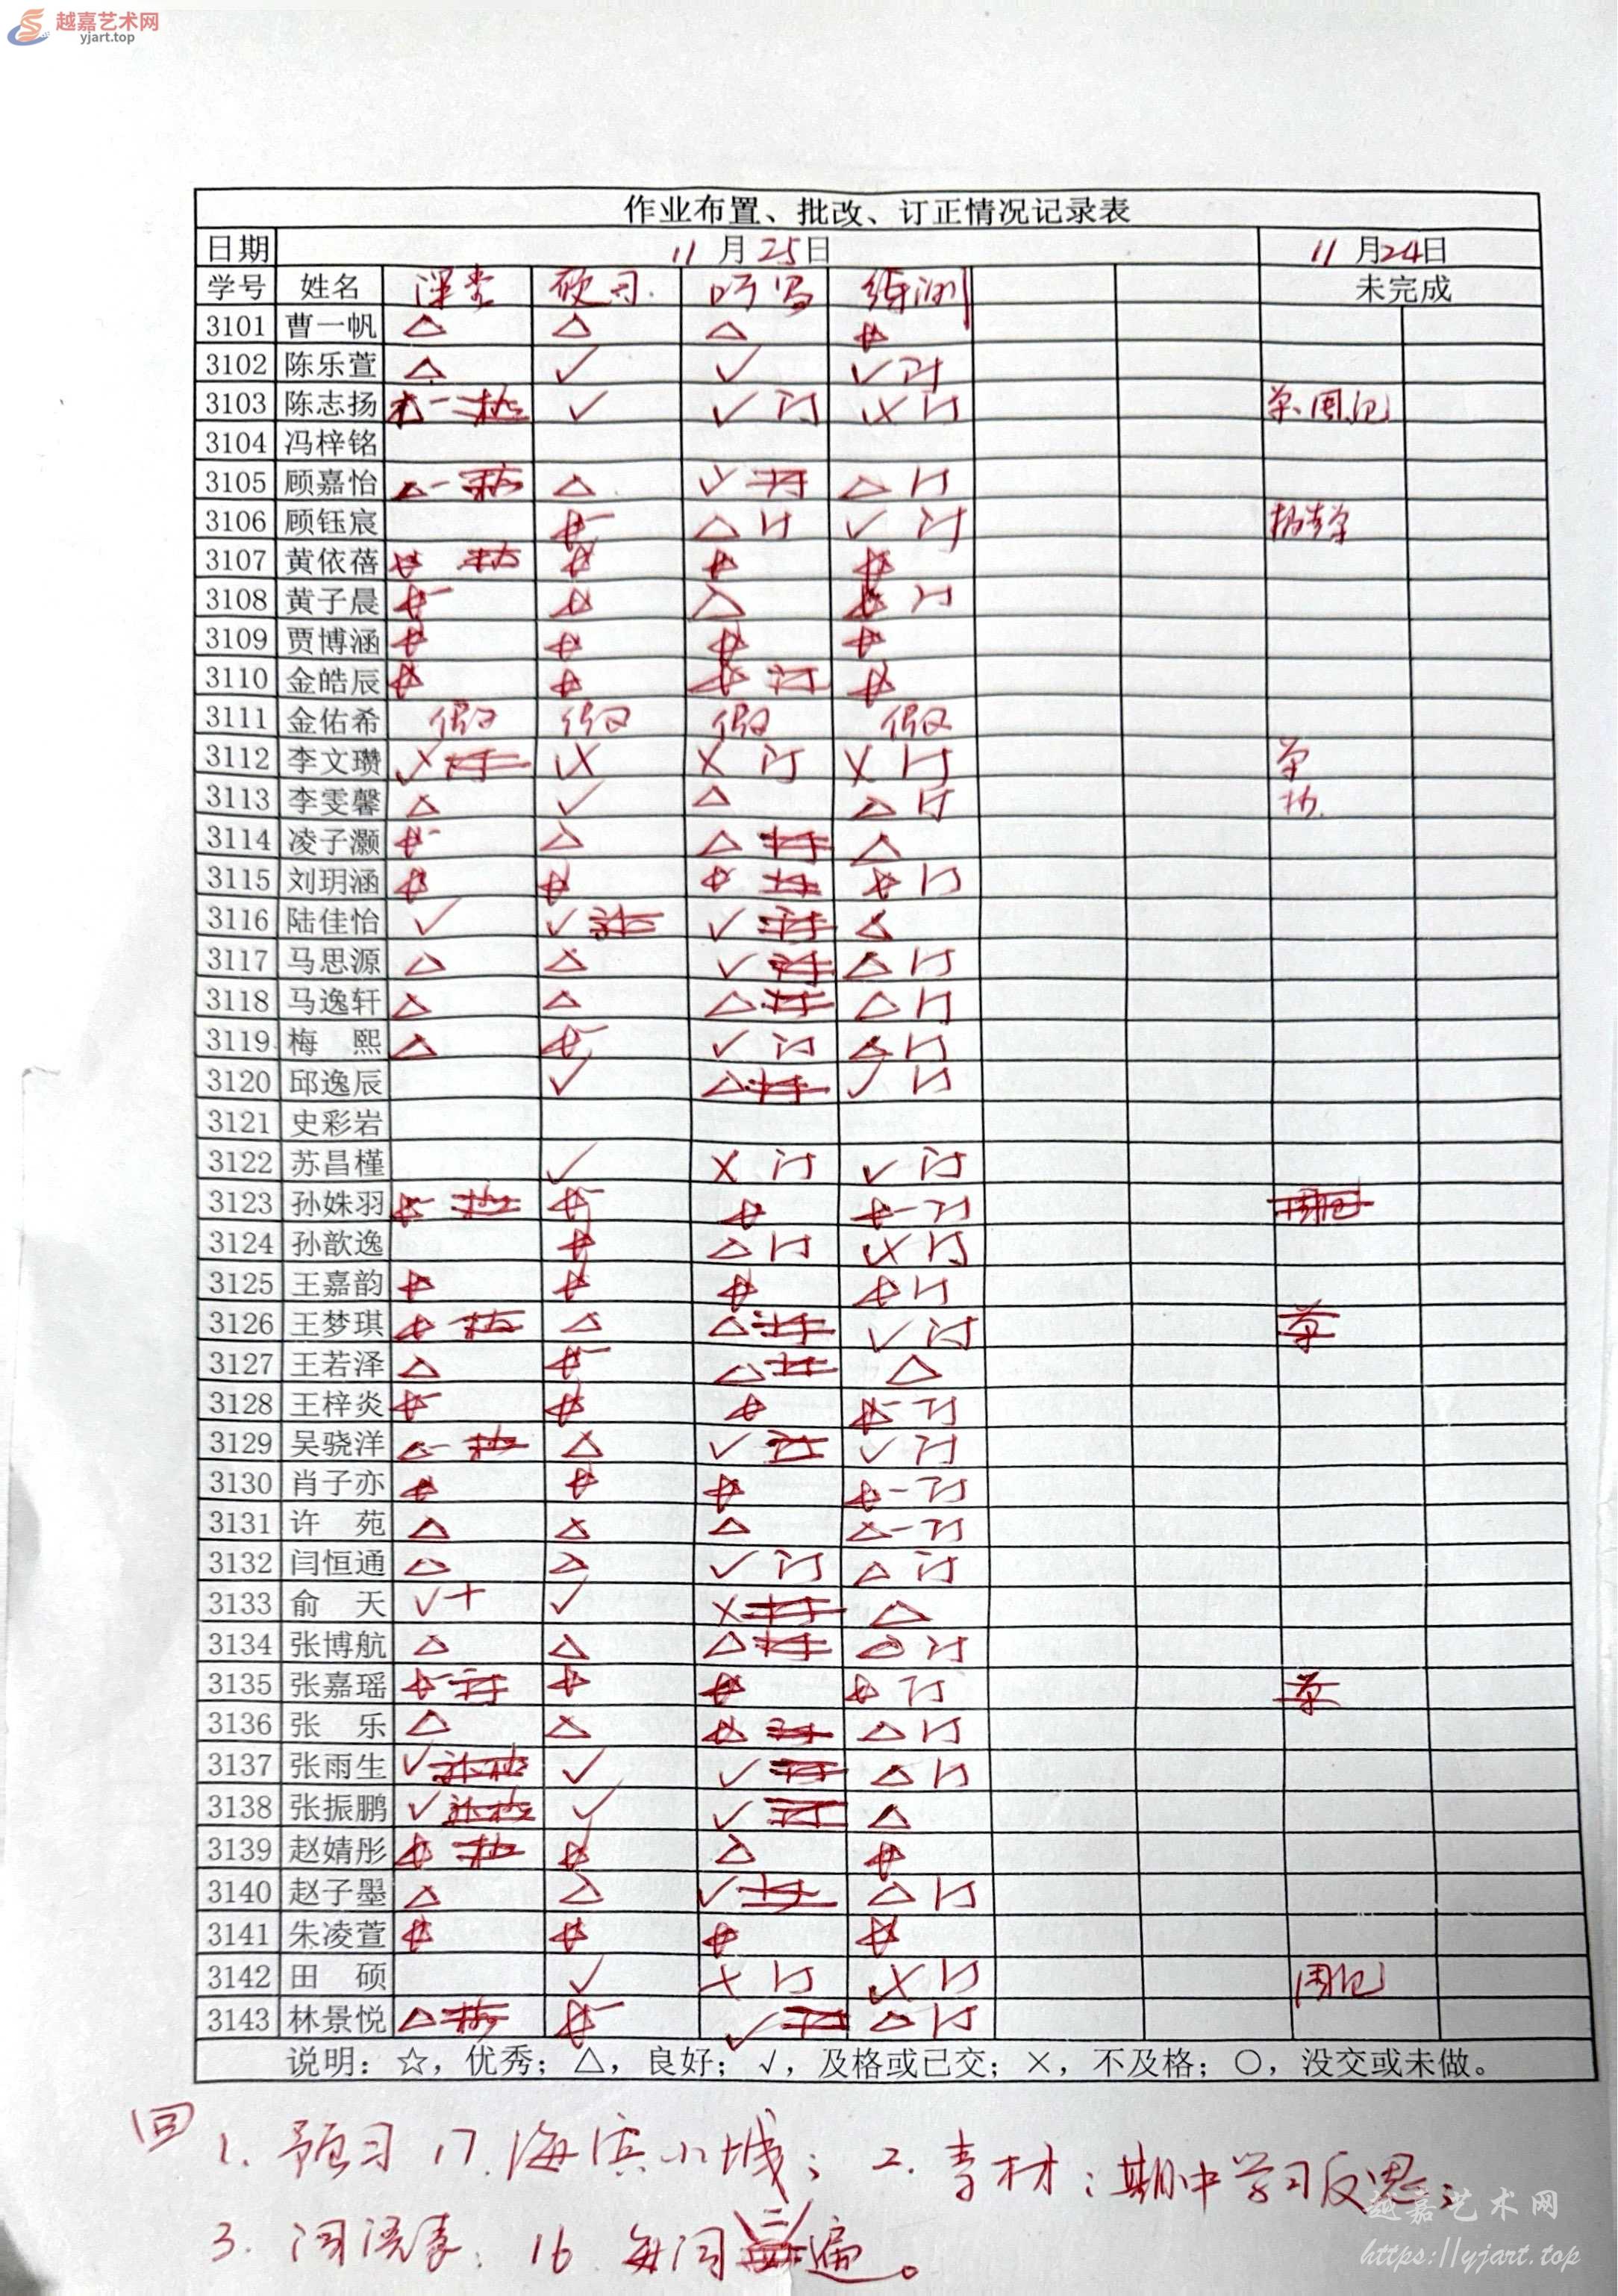 越嘉艺术网
yjart.top
作业布置、批改、订正情况记录表
日期 11月25日 11月24日
学号 姓名 课堂 预习 听写 练测 未完成
3101 曹一帆 △ △ △ ☆
3102 陈乐萱 △ √ √ √订
3103 陈志扬 √ √订 ×订 单、周记
3104 冯梓铭
3105 顾嘉怡 △- △ √订 △订
3106 顾钰宸 ☆- △订 √订
3107 黄依蓓 ☆ ☆ ☆ ☆
3108 黄子晨 ☆- ☆ △ ☆订
3109 贾博涵 ☆ ☆ ☆ ☆
3110 金皓辰 ☆ ☆ ☆订 ☆
3111 金佑希 假 假 假 假
3112 李文瓒 × × ×订 ×订 单
3113 李雯馨 △ √ △ △订 抄
3114 凌子灏 ☆- △ △订 △
3115 刘玥涵 ☆ ☆ ☆订 ☆订
3116 陆佳怡 √ √ √订 △
3117 马思源 △ △ √订 △订
3118 马逸轩 △ △ △订 △订
3119 梅 熙 △ ☆- √订 △订
3120 邱逸辰 √ △订 √订
3121 史彩岩
3122 苏昌槿 √ ×订 √订
3123 孙姝羽 ☆- ☆- ☆ ☆-订 周记
3124 孙歆逸 ☆ △订 ×订
3125 王嘉韵 ☆ ☆ ☆ ☆订
3126 王梦琪 ☆ △ △订 √订 单
3127 王若泽 △ ☆- △订 △
3128 王梓炎 ☆- ☆ ☆ ☆-订
3129 吴骁洋 △- △ √订 √订
3130 肖子亦 ☆ ☆ ☆ ☆-订
3131 许 苑 △ △ △ △-订
3132 闫恒通 △ △ √订 △订
3133 俞 天 √+ √ ×订 △
3134 张博航 △ △ △订 △订
3135 张嘉瑶 ☆-订 ☆ ☆ ☆订 单
3136 张 乐 △ △ ☆订 △订
3137 张雨生 √ √ √订 △订
3138 张振鹏 √ √ √订 △
3139 赵婧彤 ☆ ☆ △ ☆
3140 赵子墨 △ △ √订 △订
3141 朱凌萱 ☆ ☆ ☆ ☆
3142 田 硕 √ ×订 ×订 周记
3143 林景悦 △ ☆- √订 △订
说明：☆，优秀；△，良好；√，及格或已交；×，不及格；○，没交或未做。
回 1. 预习 17. 海滨小城；2. 素材：期中学习反思；
3. 词语表：16. 每词三遍。
越嘉艺术网
https://yjart.top